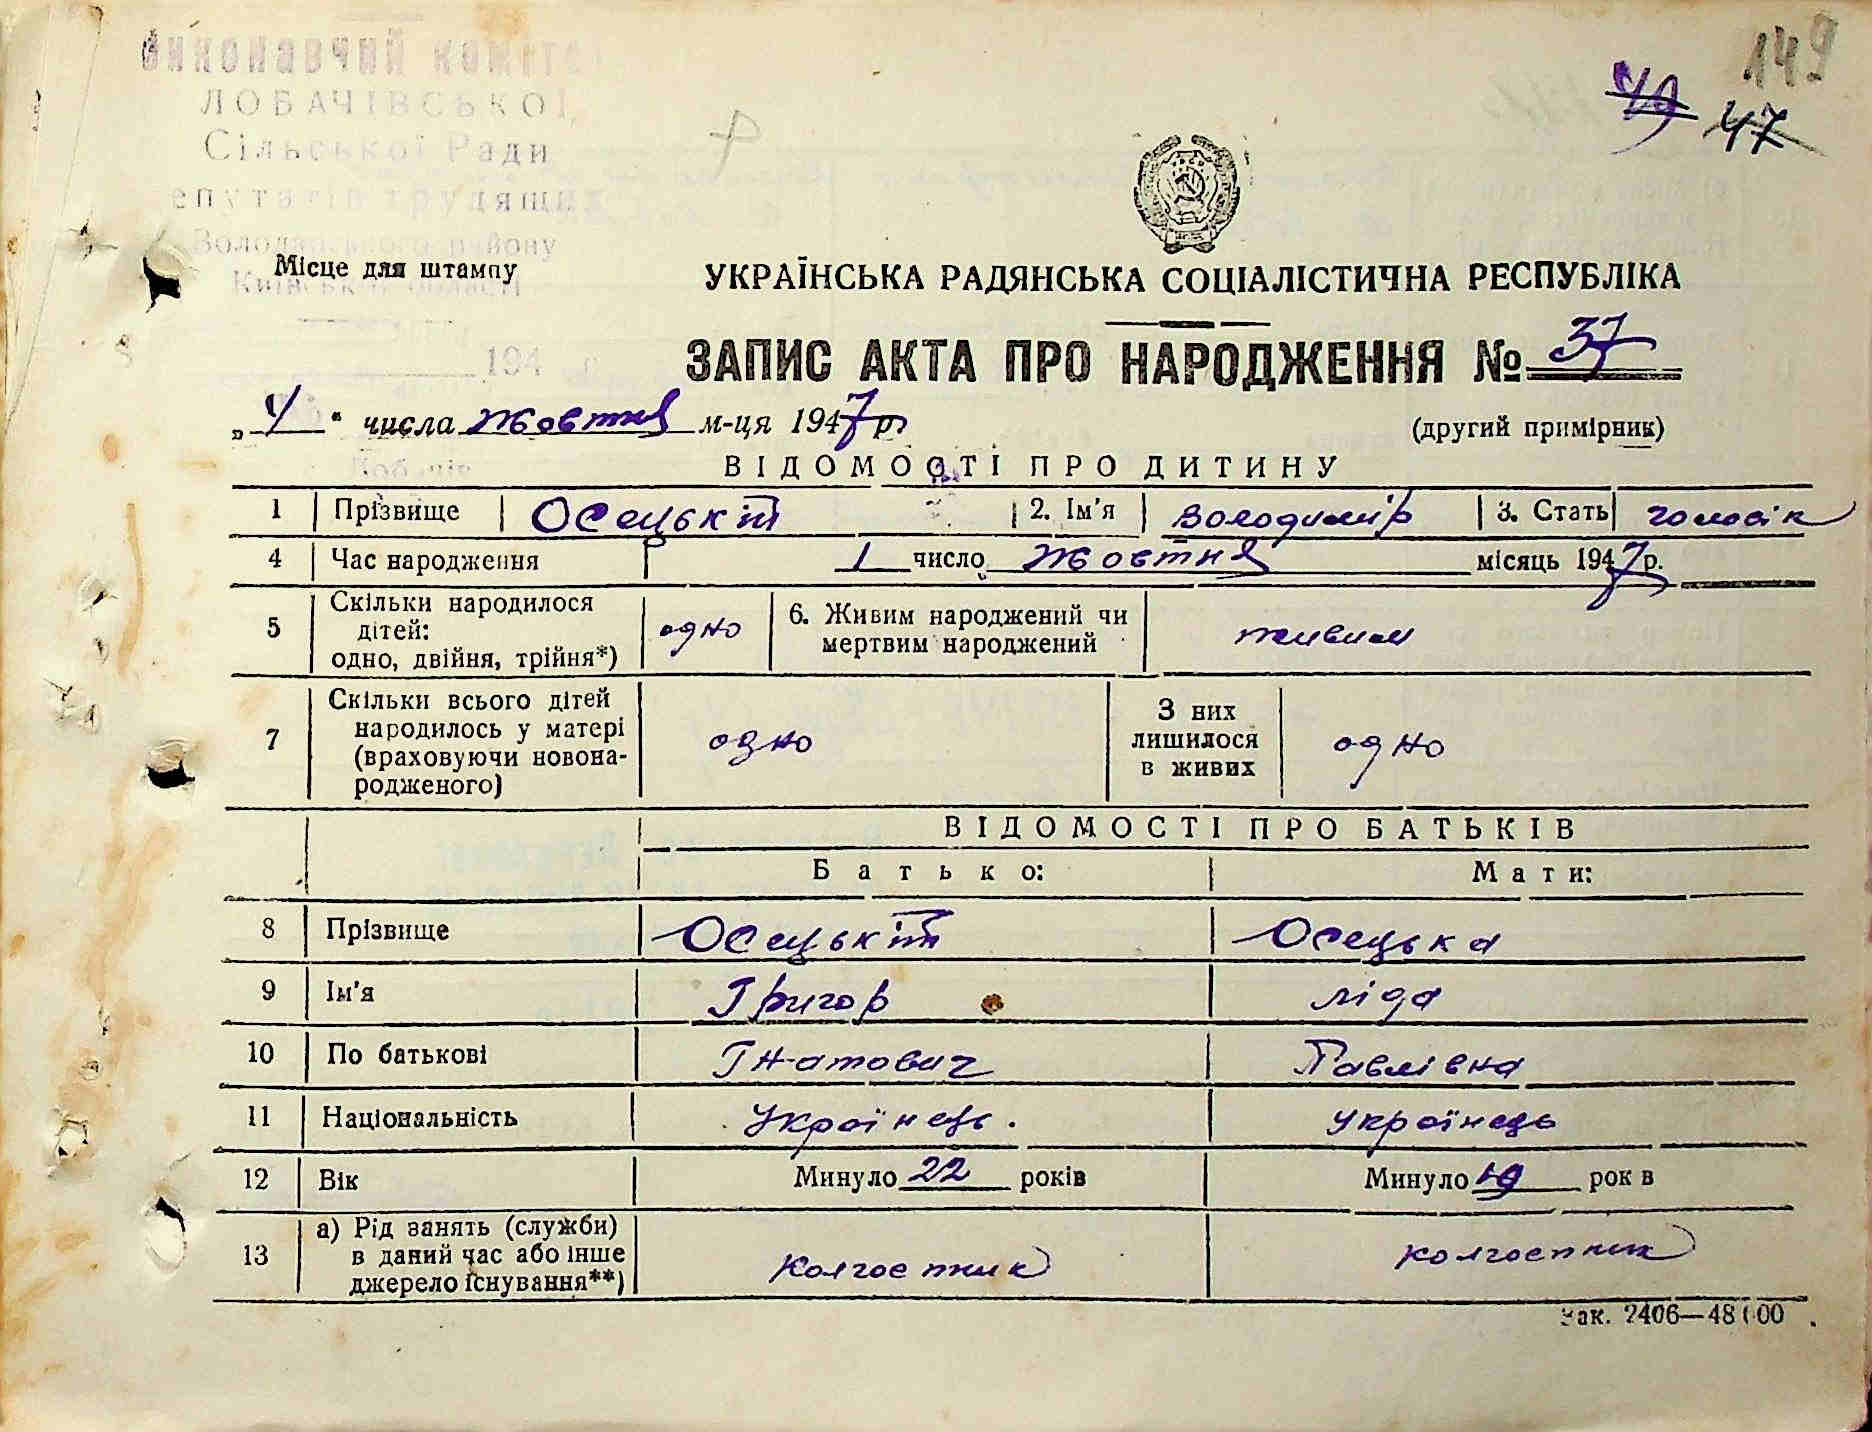 149
49 47
Виконавчий коміте
ЛОБАЧІВСЬКОЇ
Сільської Ради
епутатів трудящих
Володарського району
Київської області
Місце для штампу
194
УКРАЇНСЬКА РАДЯНСЬКА СОЦІАЛІСТИЧНА РЕСПУБЛІКА
ЗАПИС АКТА ПРО НАРОДЖЕННЯ № 37
„ 4 “ числа Жовтня м-ця 1947 р.
(другий примірник)
ВІДОМОСТІ ПРО ДИТИНУ
1 Прізвище Осецькій 2. Ім'я Володимір 3. Стать чоловік
4 Час народження 1 число Жовтня місяць 1947 р.
5 Скільки народилося дітей: одно, двійня, трійня*) одно 6. Живим народжений чи мертвим народжений живим
7 Скільки всього дітей народилось у матері (враховуючи новонародженого) одно З них лишилося в живих одно
ВІДОМОСТІ ПРО БАТЬКІВ
Батько: Мати:
8 Прізвище Осецькій Осецька
9 Ім'я Григор Ліда
10 По батькові Гнатович Павлівна
11 Національність Українець. Українець
12 Вік Минуло 22 років Минуло 19 рок в
13 а) Рід занять (служби) в даний час або інше джерело існування**) Колгоспник колгоспник
Зак. 2406—48000